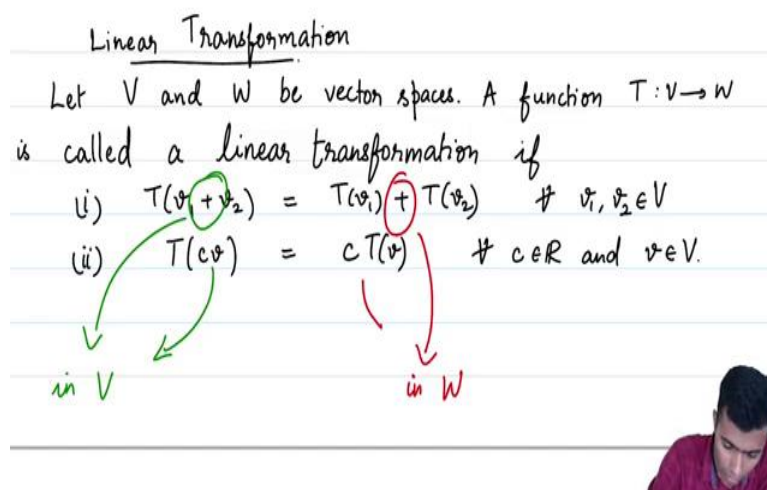 Linear Transformation
Let V and W be vector spaces. A function T : V → W
is called a linear transformation if
(i) T(v₁ + v₂) = T(v₁) + T(v₂) ∀ v₁, v₂ ∈ V
(ii) T(cv) = c T(v) ∀ c ∈ R and v ∈ V.
in V in W